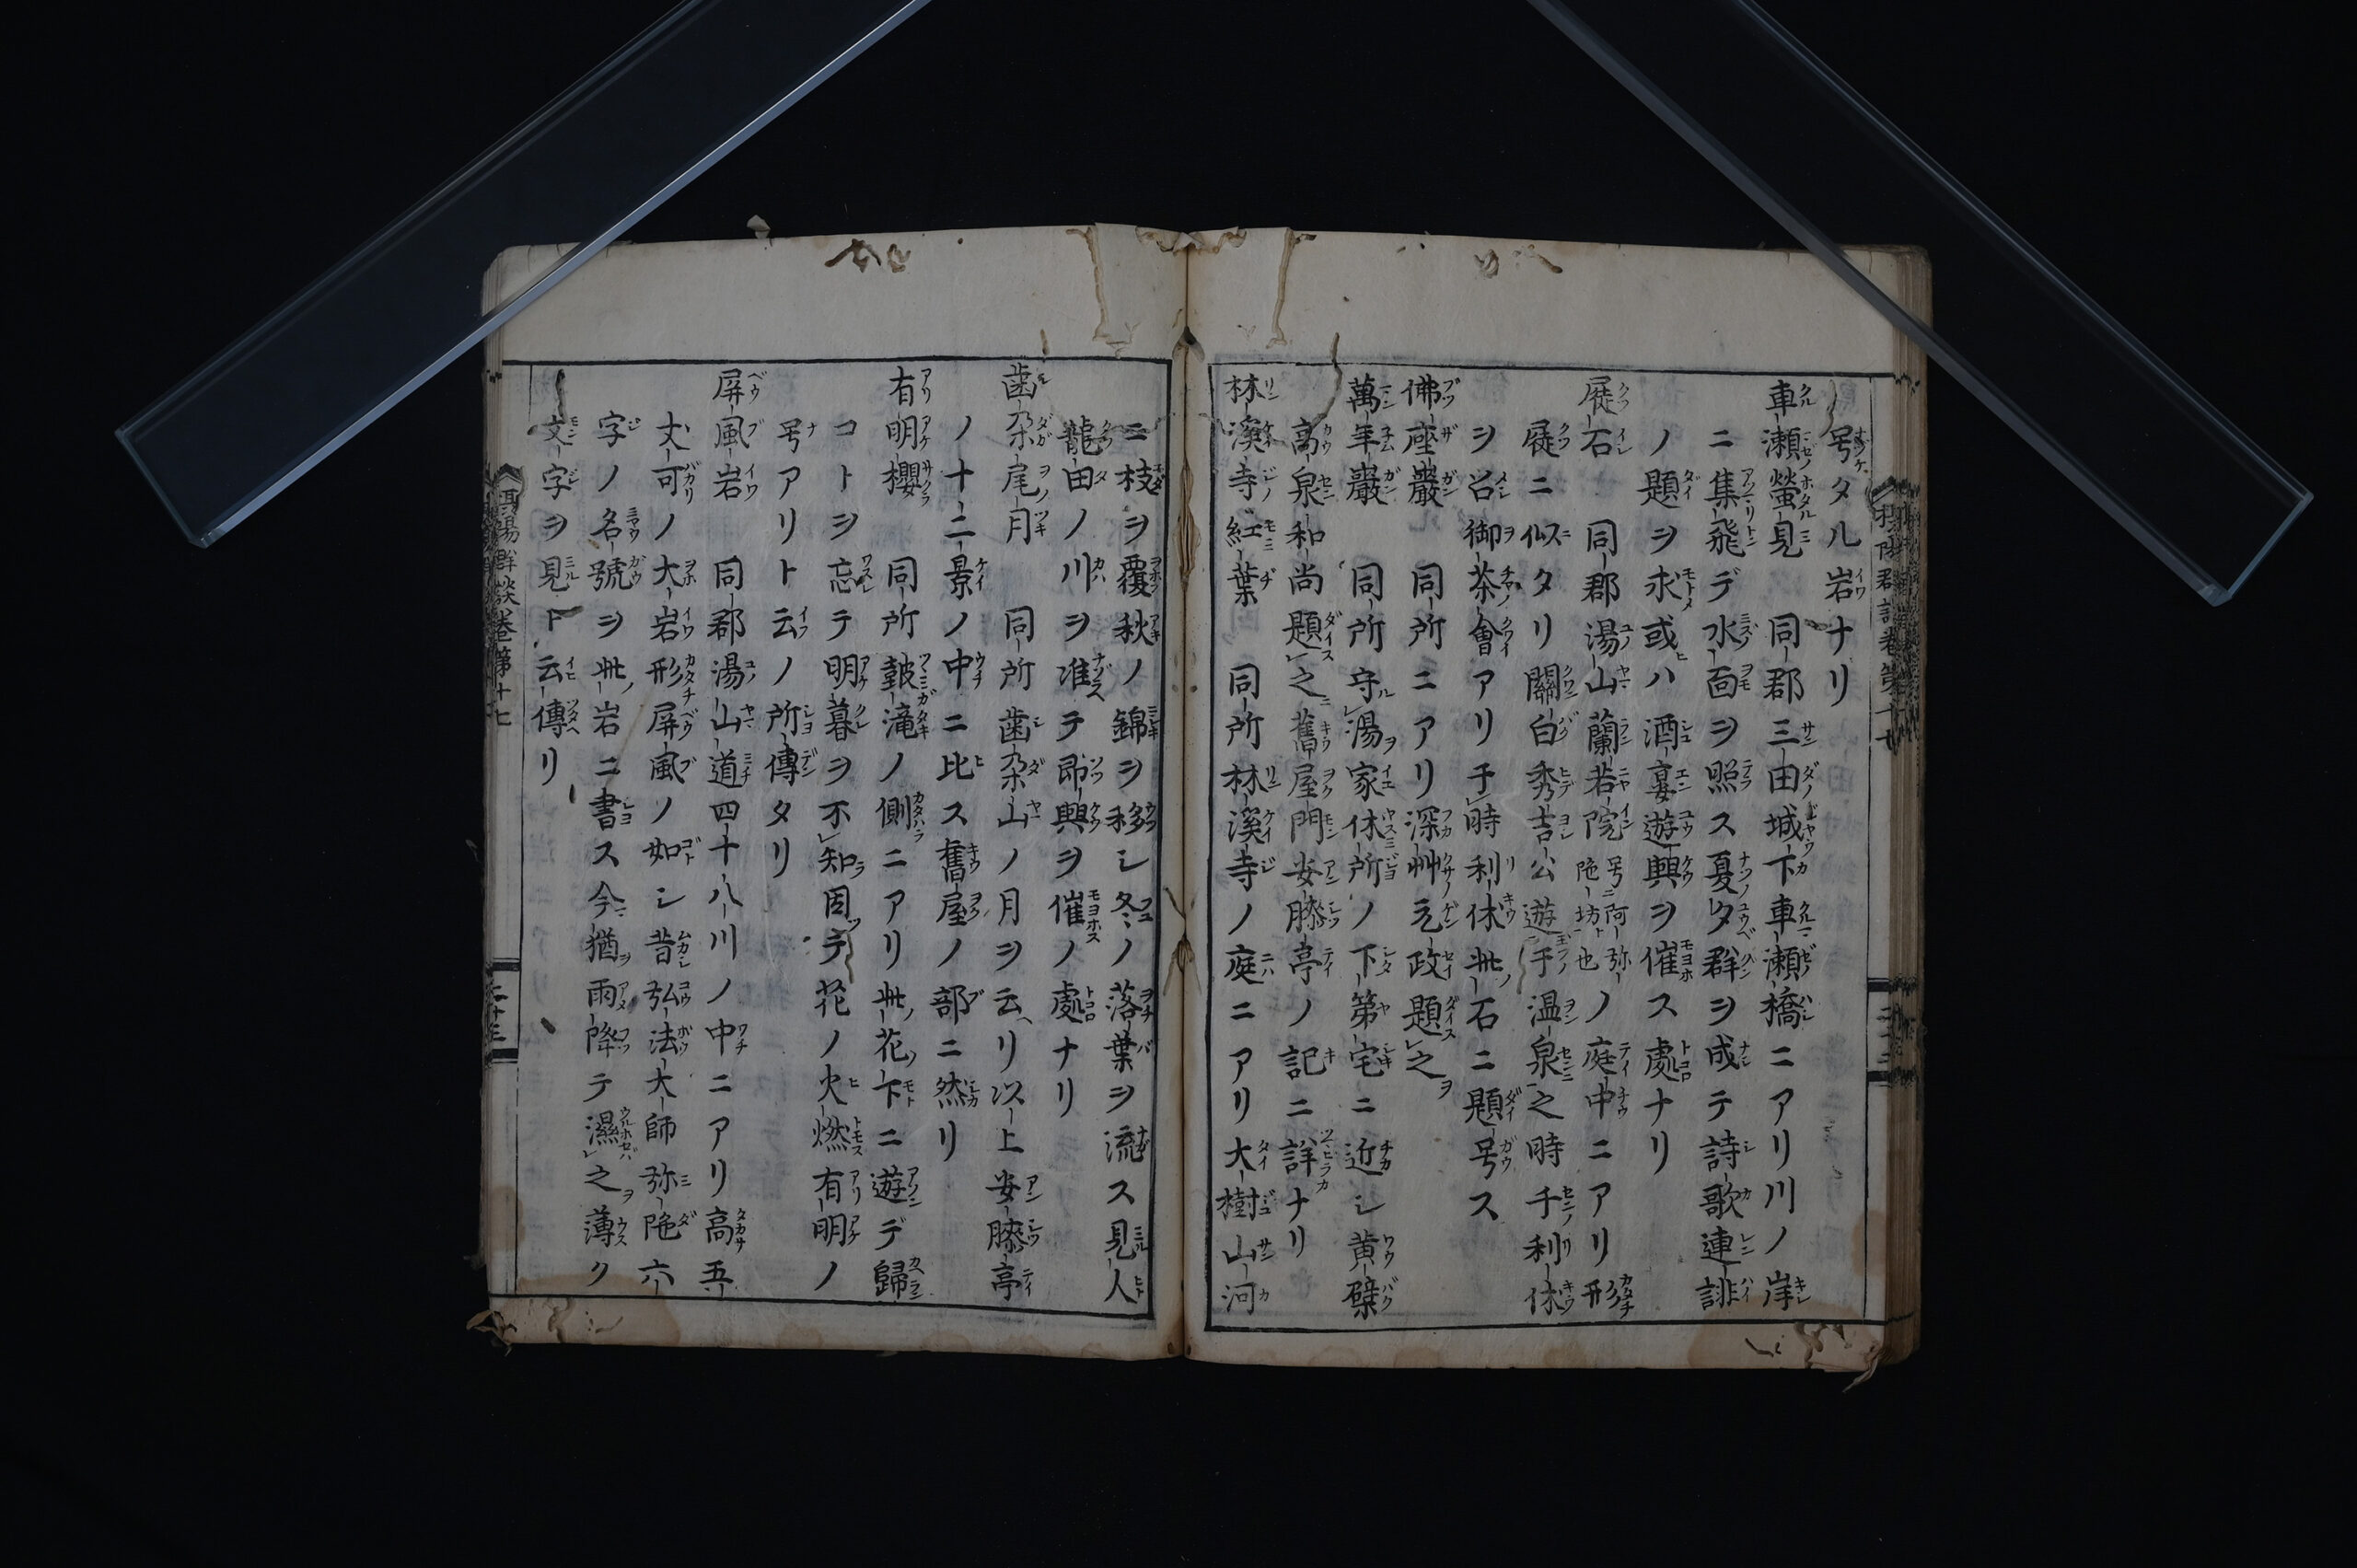 号タル岩ナリ
車瀬螢見 同郡三田城下車瀬橋ニアリ川ノ岸
ニ集飛デ水面ヲ照ス夏夕群ヲ成テ詩歌連誹
ノ題ヲ求或ハ酒宴遊興ヲ催ス處ナリ
屐石 同郡湯山蘭若院号阿弥陁坊ト也ノ庭中ニアリ形
屐ニ似タリ關白秀吉公遊手温泉之時千利休
ヲ召御茶會アリ于時利休此石ニ題号ス
佛座巖 同所ニアリ深艸元政題之
萬年巖 同所守湯家休所ノ下第宅ニ近シ黄檗
高泉和尚題之舊屋門安膝亭ノ記ニ詳ナリ
林溪寺紅葉 同所林溪寺ノ庭ニアリ大樹山河
ニ枝ヲ覆秋ノ錦ヲ移シ冬ノ落葉ヲ流ス見人
龍田ノ川ヲ准テ即興ヲ催ノ處ナリ
歯朶尾月 同所歯朶山ノ月ヲ云リ以上安膝亭
ノ十二景ノ中ニ比ス舊屋ノ部ニ然リ
有明櫻 同所皷滝ノ側ニアリ此花下ニ遊デ歸
コトヲ忘テ明暮ヲ不知固テ花ノ火燃有明ノ
号アリト云ノ所傳タリ
屏風岩 同郡湯山道四十八川ノ中ニアリ高五
丈可ノ大岩形屏風ノ如シ昔弘法大師弥陁六
字ノ名號ヲ此岩ニ書ス今猶雨降テ濕之薄ク
文字ヲ見ト云傳リ